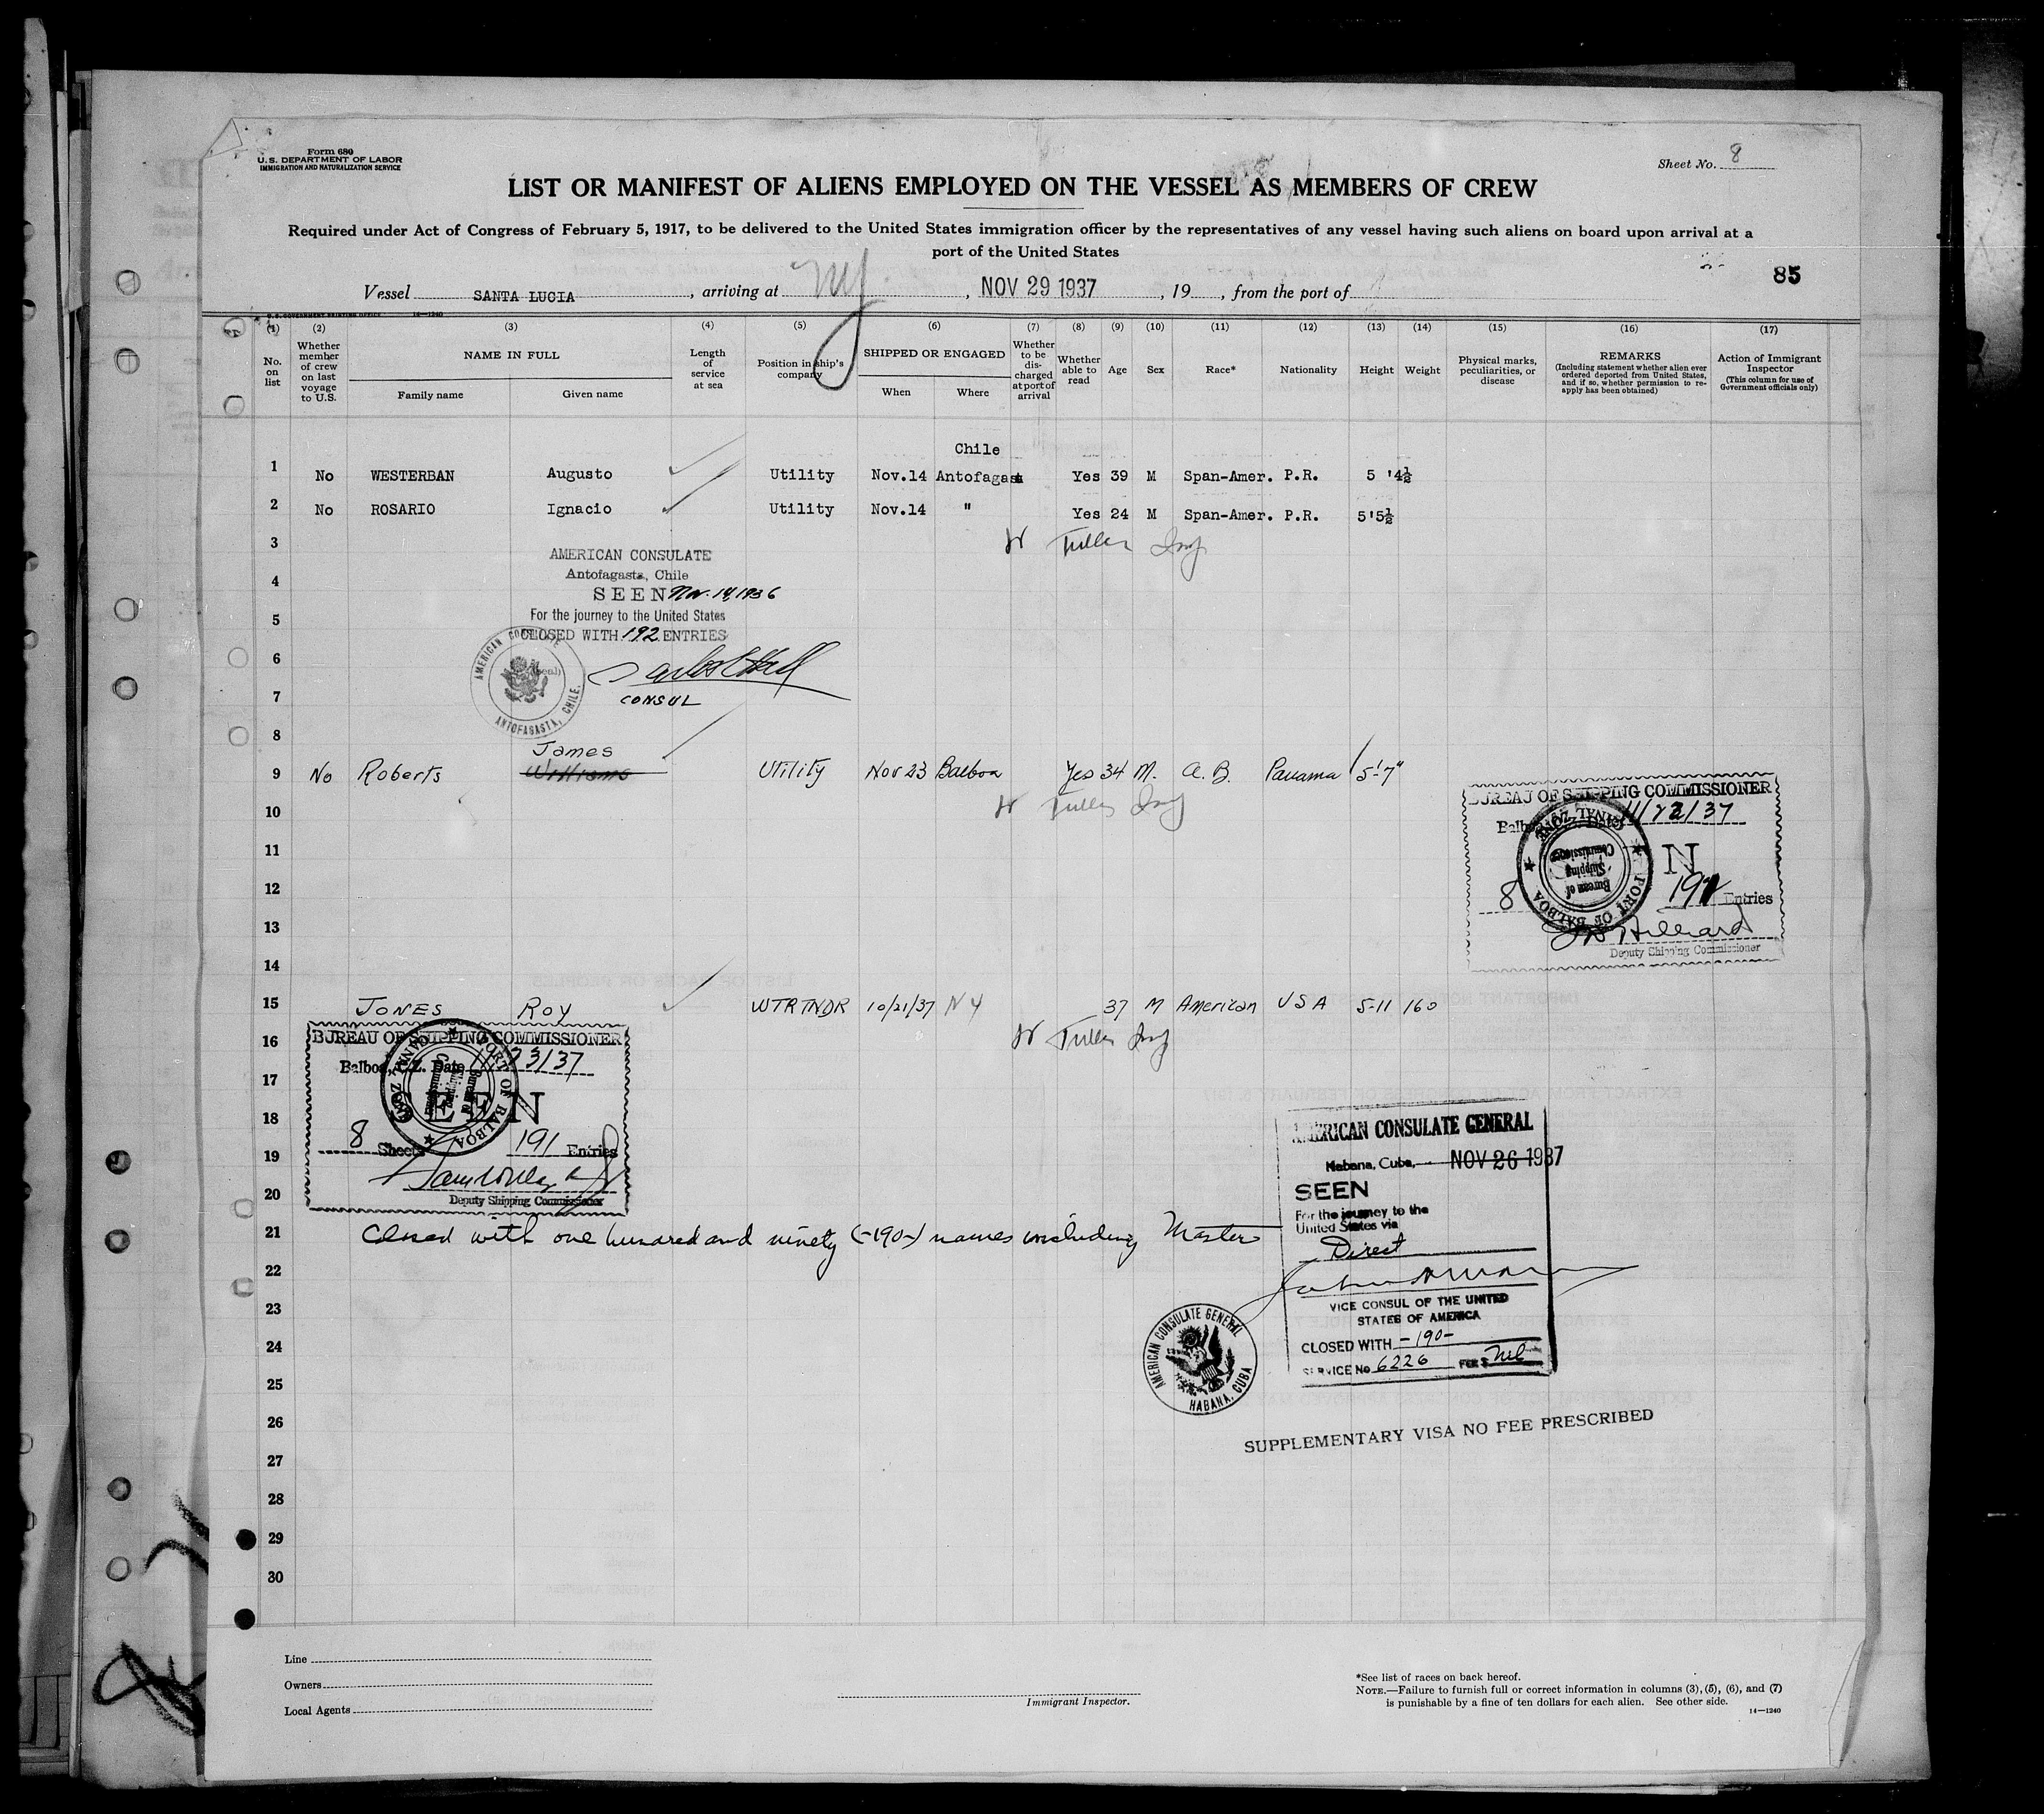 Form 680
U.S. DEPARTMENT OF LABOR
IMMIGRATION AND NATURALIZATION SERVICE
Sheet No. 8
LIST OR MANIFEST OF ALIENS EMPLOYED ON THE VESSEL AS MEMBERS OF CREW
Required under Act of Congress of February 5, 1917, to be delivered to the United States immigration officer by the representatives of any vessel having such aliens on board upon arrival at a
port of the United States
85
Vessel SANTA LUCIA, arriving at NY, NOV 29 1937, 19, from the port of
U.S. GOVERNMENT PRINTING OFFICE 14—1240
(1) (2) (3) (4) (5) (6) (7) (8) (9) (10) (11) (12) (13) (14) (15) (16) (17)
No. on list
Whether member of crew on last voyage to U.S.
NAME IN FULL
Family name
Given name
Length of service at sea
Position in ship's company
SHIPPED OR ENGAGED
When
Where
Whether to be discharged at port of arrival
Whether able to read
Age
Sex
Race*
Nationality
Height
Weight
Physical marks, peculiarities, or disease
REMARKS
(Including statement whether alien ever ordered deported from United States, and if so, whether permission to reapply has been obtained)
Action of Immigrant Inspector
(This column for use of Government officials only)
Chile
1 No WESTERBAN Augusto Utility Nov.14 Antofagasta Yes 39 M Span-Amer. P.R. 5 '4½
2 No ROSARIO Ignacio Utility Nov.14 " Yes 24 M Span-Amer. P.R. 5'5½
3 Tuller Insp
AMERICAN CONSULATE
4 Antofagasta, Chile
SEEN Nov. 14, 1936
5 For the journey to the United States
CLOSED WITH 192 ENTRIES
6
AMERICAN CONSULATE
(Seal)
ANTOFAGASTA, CHILE.
7 CONSUL
8
James
9 No Roberts Williams Utility Nov 23 Balboa Yes 34 M. A.B. Panama 5'-7"
10 Tuller Insp
BUREAU OF SHIPPING COMMISSIONER
Balboa, Date 11/22/37
N
8 191 Entries
Hilliard
Deputy Shipping Commissioner
CANAL ZONE
Bureau of Shipping Commissioner
PORT OF BALBOA
11
12
13
14
15 JONES ROY WTRTNDR 10/21/37 NY 37 M American USA 5-11 160
16 Tuller Insp
BUREAU OF SHIPPING COMMISSIONER
Balboa, C.Z. Date 11/23/37
SEEN
8 Sheets 191 Entries
Deputy Shipping Commissioner
PORT OF BALBOA
CANAL ZONE
Bureau of Shipping Commissioner
17
18
19
20
21 Closed with one hundred and ninety (-190-) names including Master
AMERICAN CONSULATE GENERAL
Habana, Cuba, NOV 26 1937
SEEN
For the journey to the
United States via
Direct
VICE CONSUL OF THE UNITED
STATES OF AMERICA
CLOSED WITH -190-
SERVICE No 6226 FEE $ Nil
AMERICAN CONSULATE GENERAL
HABANA, CUBA
SUPPLEMENTARY VISA NO FEE PRESCRIBED
22
23
24
25
26
27
28
29
30
Line
Owners
Local Agents
Immigrant Inspector.
*See list of races on back hereof.
NOTE.—Failure to furnish full or correct information in columns (3), (5), (6), and (7)
is punishable by a fine of ten dollars for each alien. See other side.
14—1240